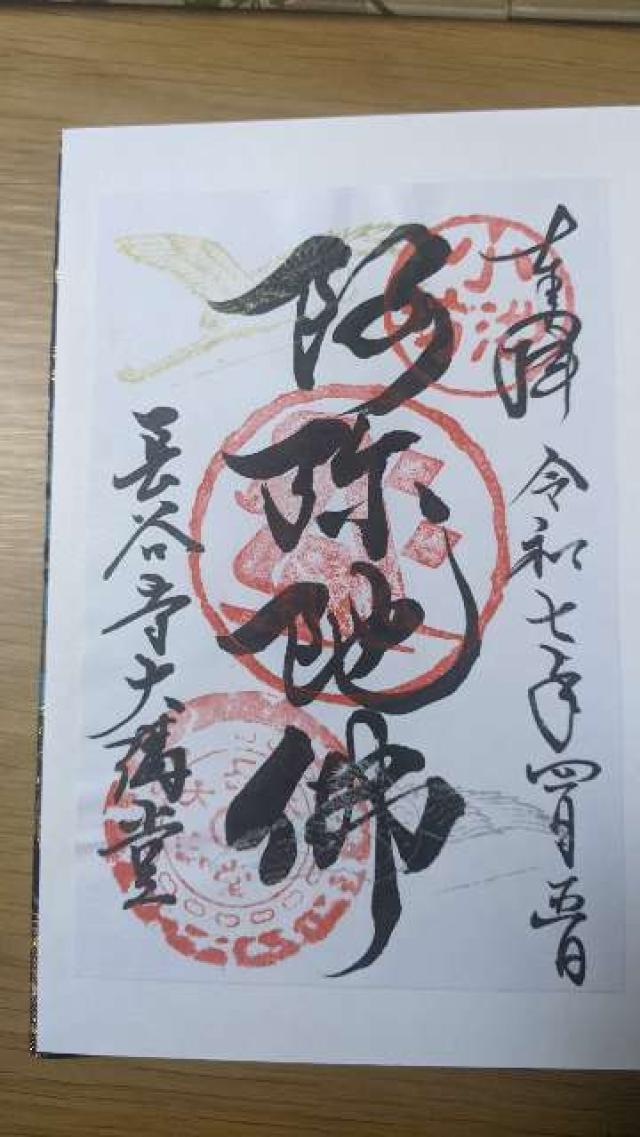 奉拝
令和七年四月五日
阿弥陁佛
長谷寺大講堂